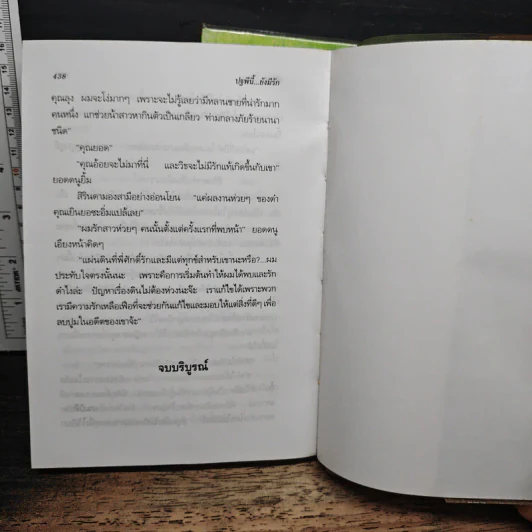 438
ปฐพีนี้...ยังมีรัก
คุณลุง ผมจะโง่มากๆ เพราะจะไม่รู้เลยว่ามีหลานชายที่น่ารักมาก
คนหนึ่ง แกช่วยน้าสาวหากินตัวเป็นเกลียว ท่ามกลางภัยร้ายนานา
ชนิด"
"คุณยอด"
"คุณอ้อยจะไม่มาที่นี่ และวิชจะไม่มีรักแท้เกิดขึ้นกับเขา"
ยอดตนูยิ้ม
สิรินตามองสามีอย่างอ่อนโยน "แค่ผลงานห่วยๆ ของดำ
คุณเยินยอซะอิ่มแปล้เลย"
"ผมรักสาวห่วยๆ คนนั้นตั้งแต่ครั้งแรกที่พบหน้า" ยอดตนู
เอียงหน้าคิดๆ
"แผ่นดินที่พี่ศักดิ์รักและมีแต่ทุกข์สำหรับเขานะหรือ?...ผม
ประทับใจตรงนั้นนะ เพราะคือการเริ่มต้นทำให้ผมได้พบและรัก
ดำไงล่ะ ปัญหาเรื่องดินไม่ต้องห่วงนะจ๊ะ เราแก้ไขได้เพราะพวก
เรามีความรักเหลือเฟือที่จะช่วยกันแก้ไขและมอบให้แต่สิ่งที่ดีๆ เพื่อ
ลบปมในอดีตของเขาจ้ะ"
จบบริบูรณ์